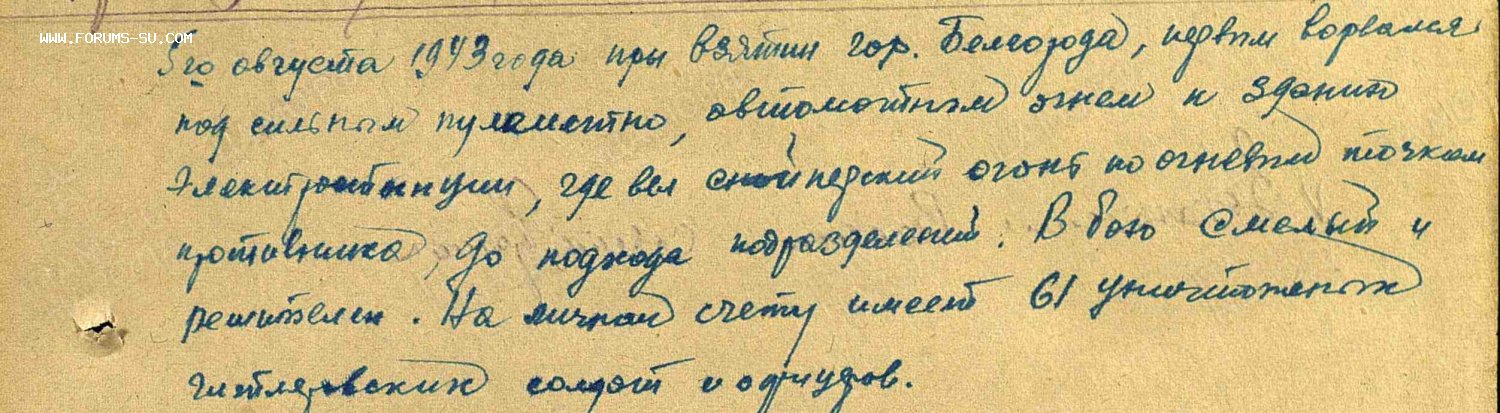 WWW.FORUMS-SU.COM
5го августа 1943 года при взятии гор. Белгорода, первым ворвался
под сильным пулеметно, автоматным огнем к зданию
Электростанции, где вел снайперский огонь по огневым точкам
противника, до подхода подразделений. В бою смелый и
решителен. На личном счету имеет 61 уничтоженных
гитлеровских солдат и офицеров.